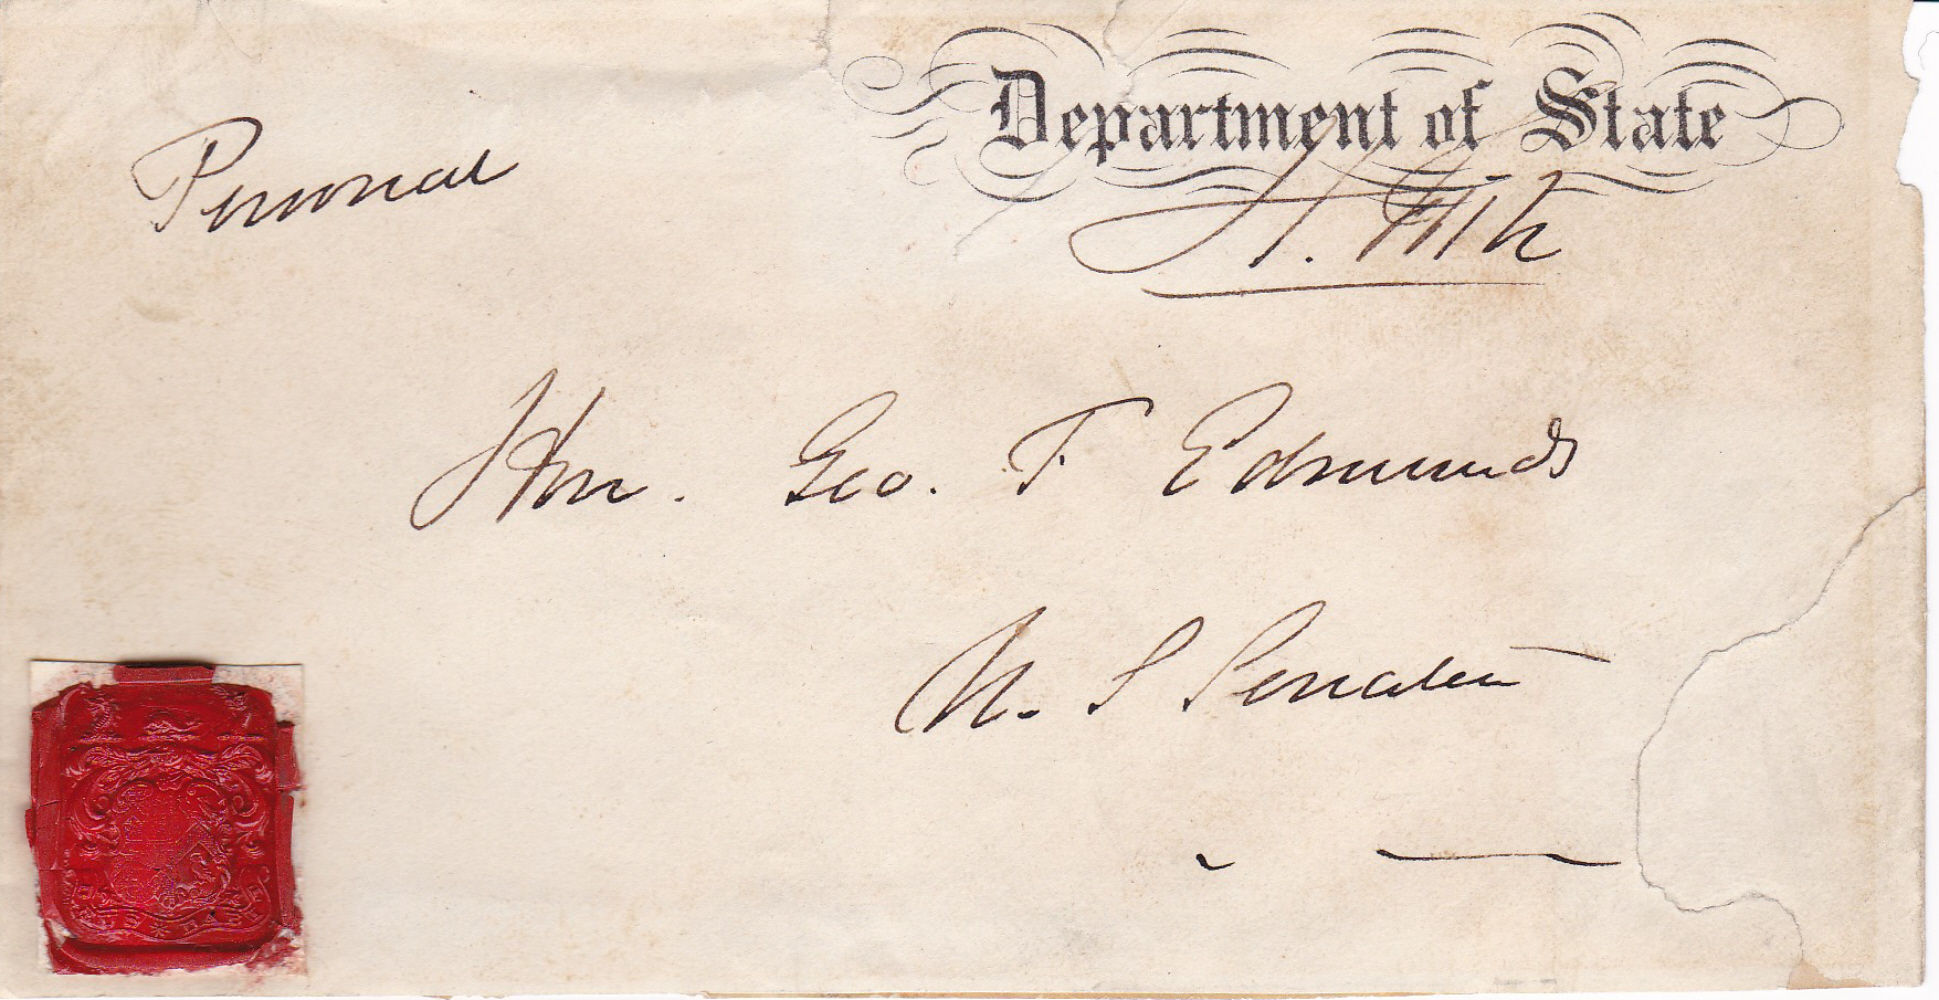 Department of State
Personal
H. Fish
Hon. Geo. F Edmunds
U. S Senator